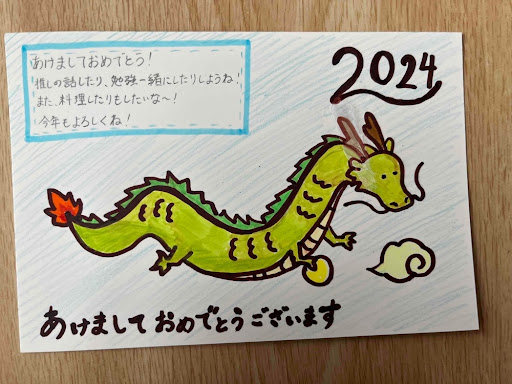 あけましておめでとう!
推しの話したり、勉強一緒にしたりしようね!
また、料理したりもしたいな〜!
今年もよろしくね!
2024
あけましておめでとうございます